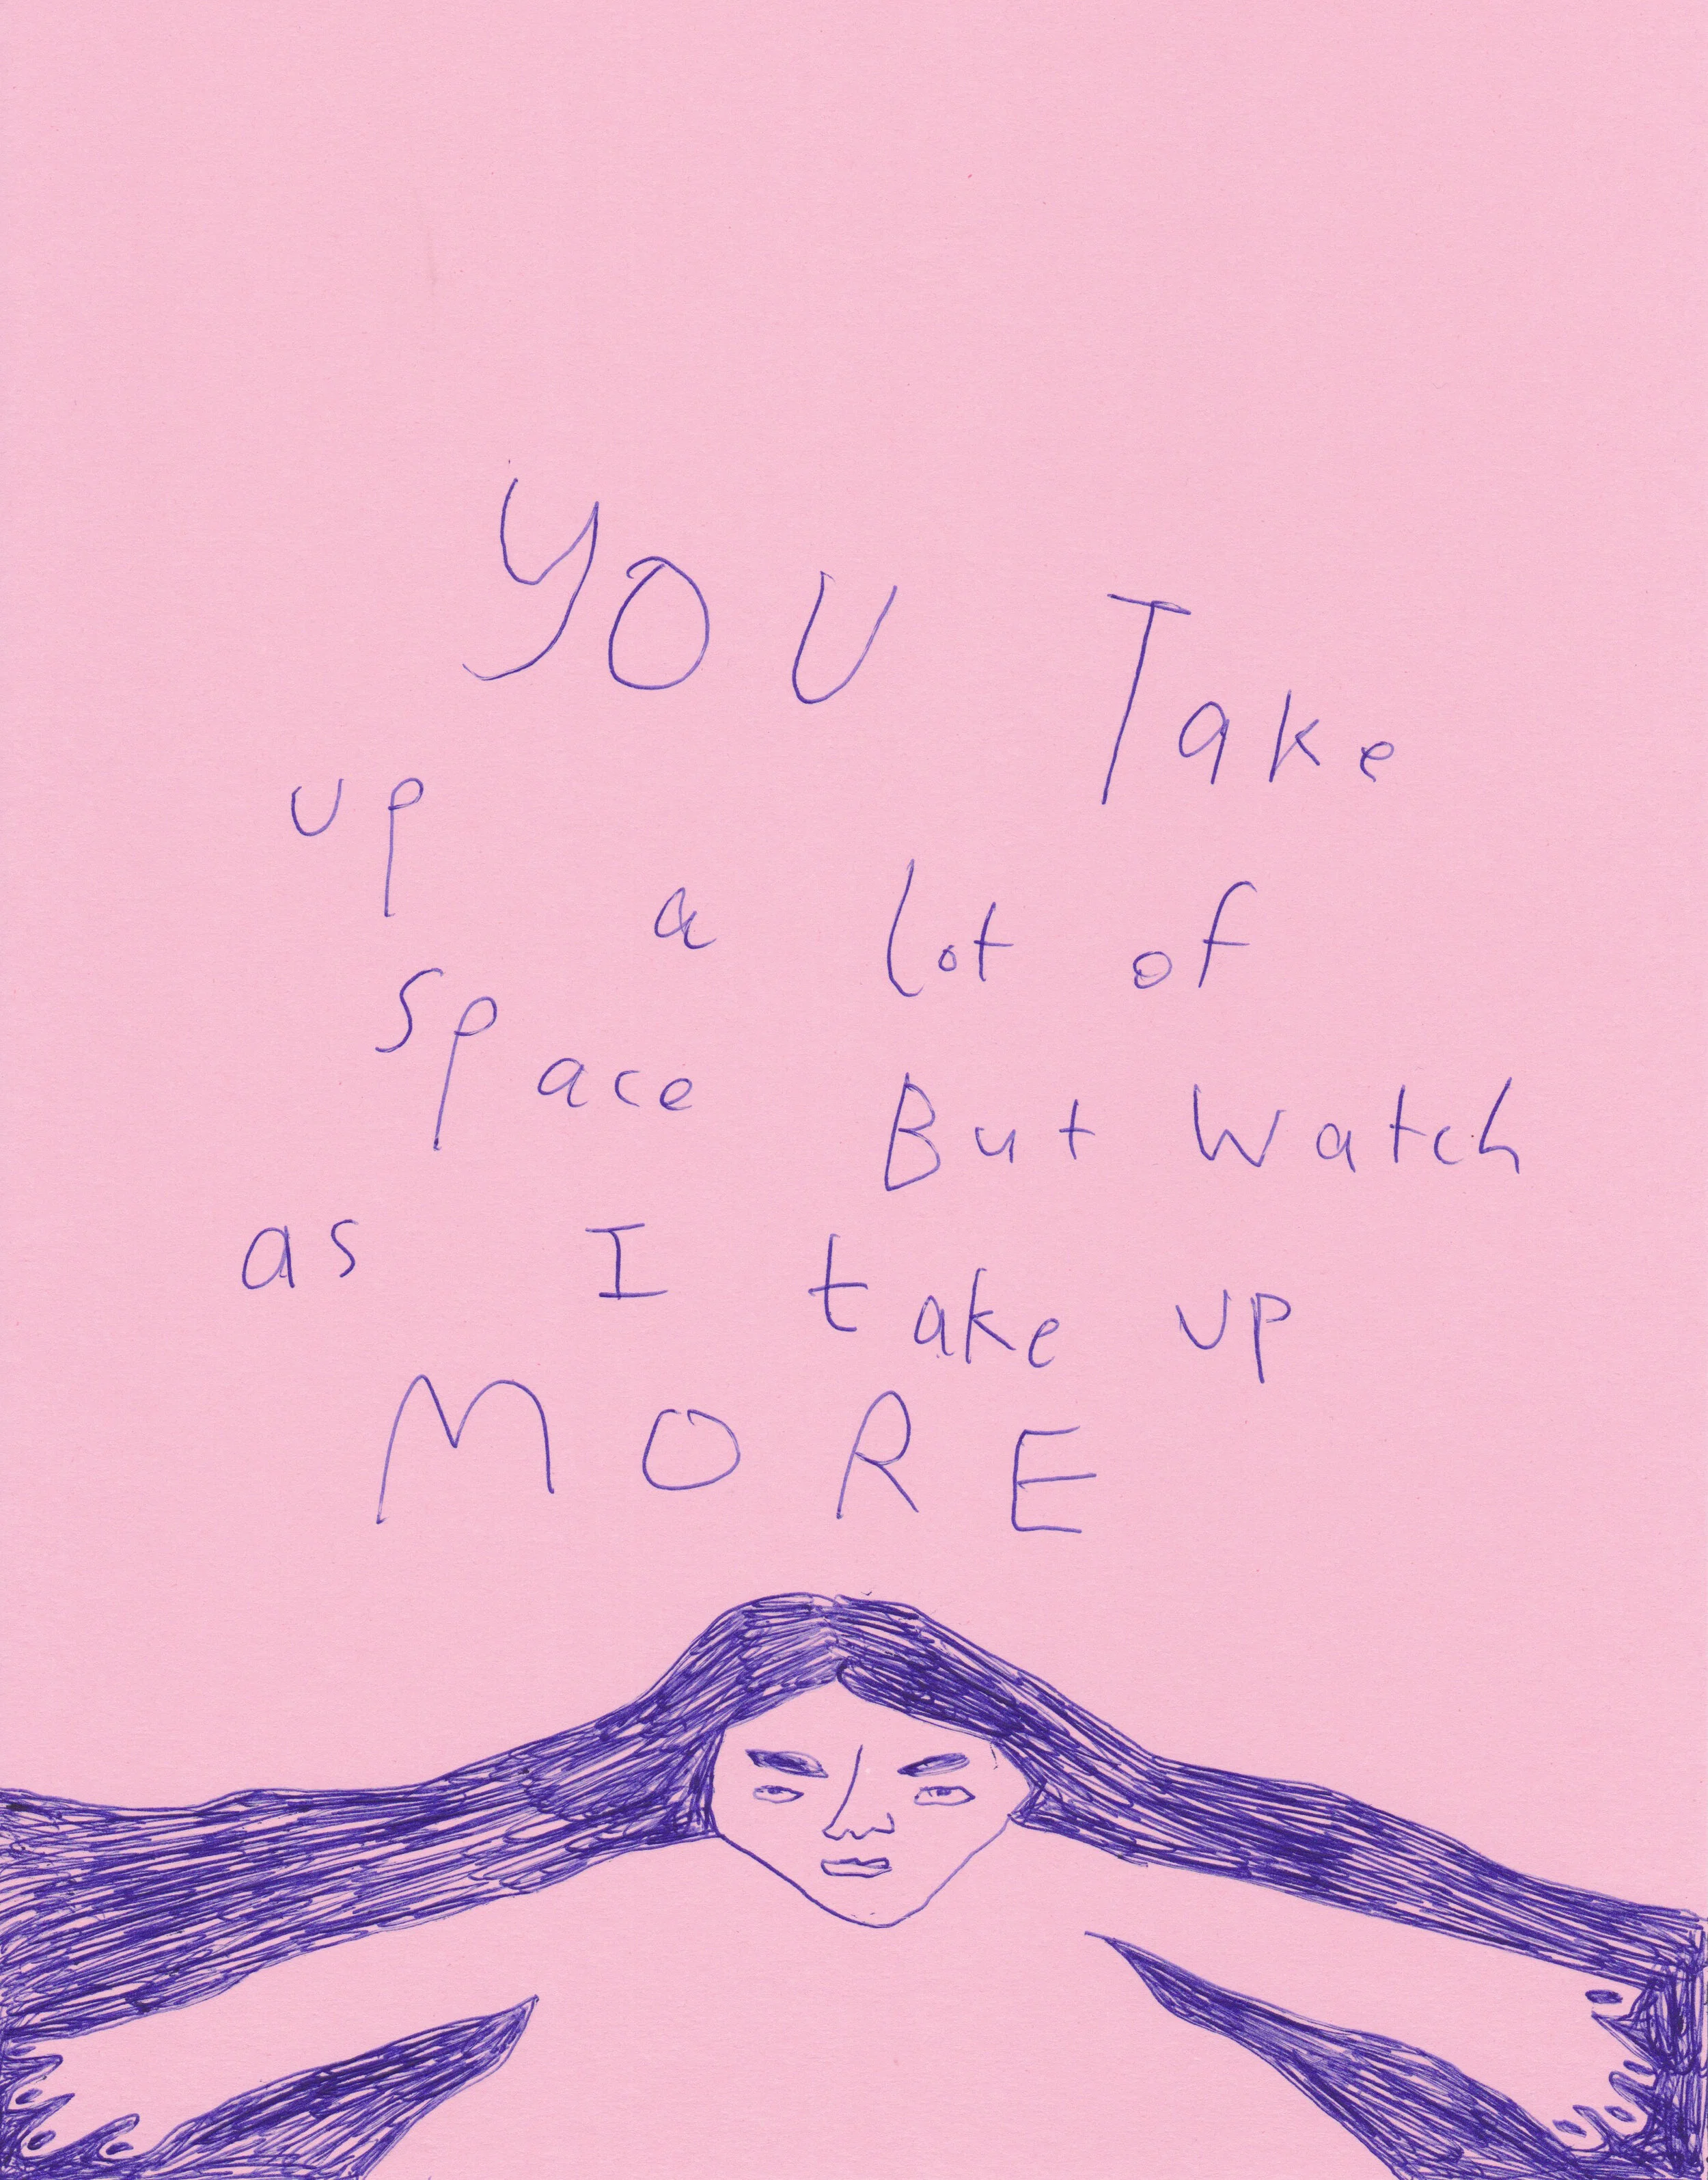 YOU Take
up a lot of
space But Watch
as I take up
MORE